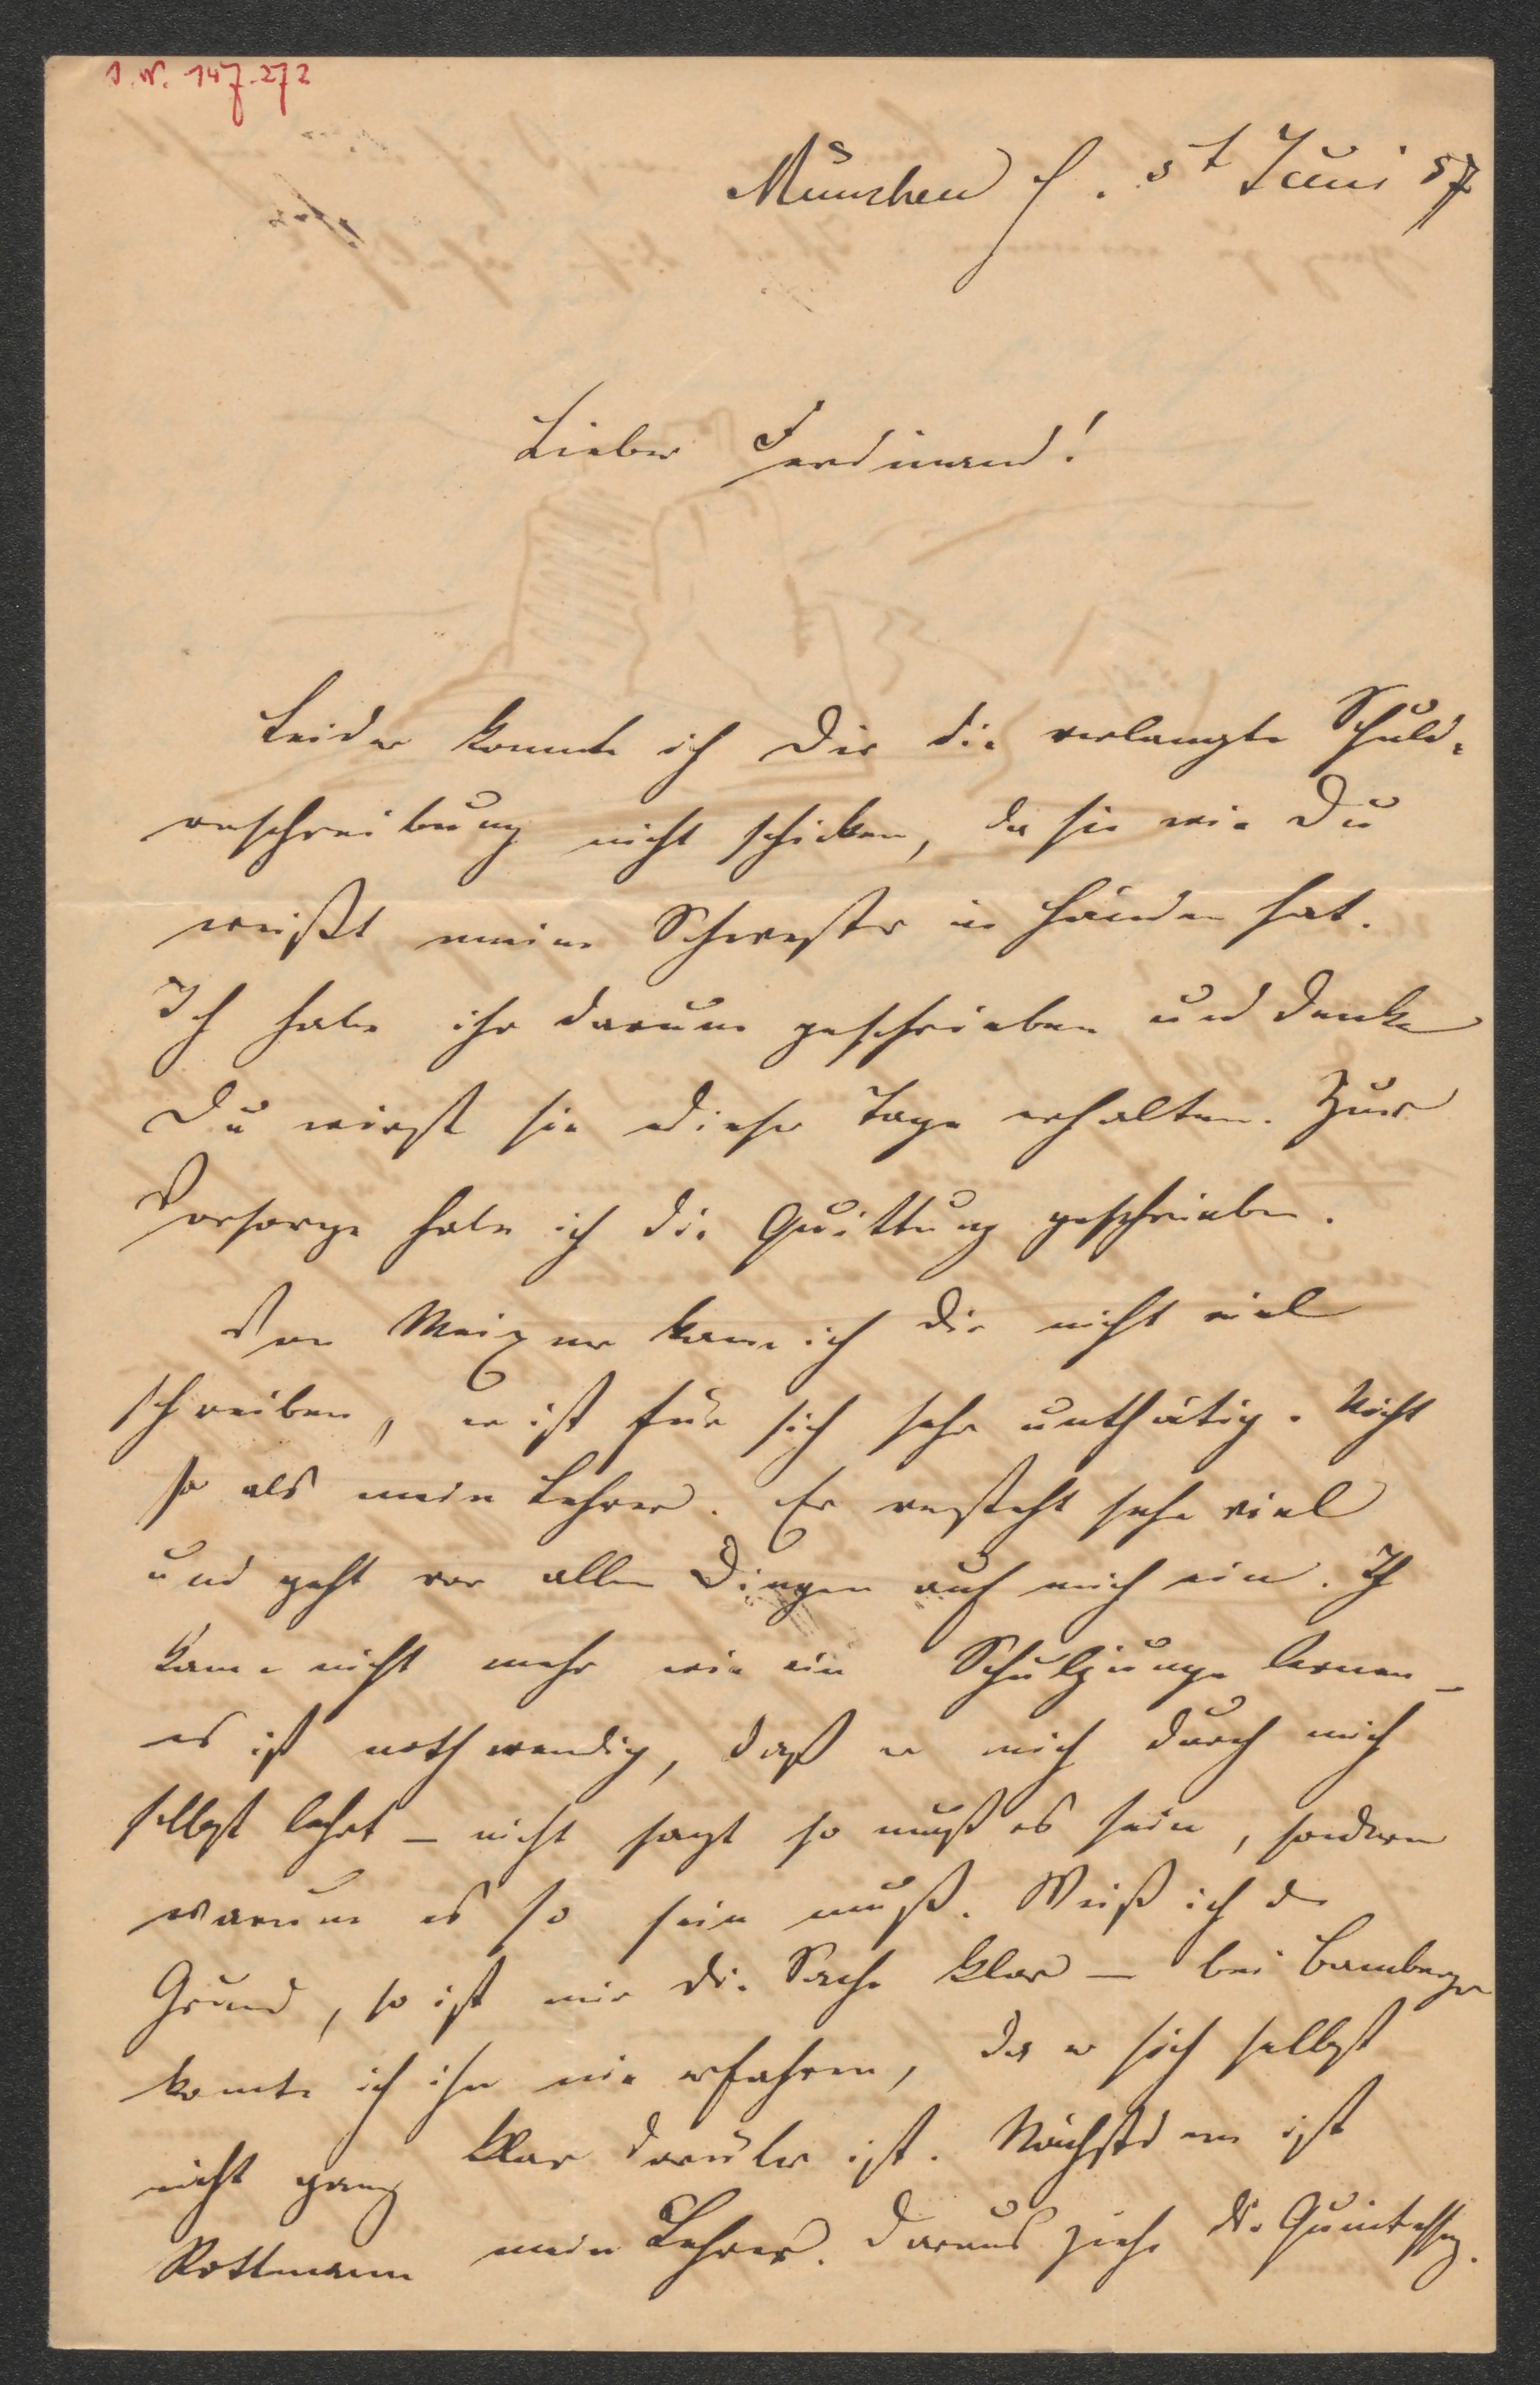 I. N. 147.272
München d. 5t Juni 57
Lieber Ferdinand!
Leider konnte ich Dir die verlangte Schuld-
verschreibung nicht schicken, da sie wie Du
weißt meine Schwester in Händen hat.
Ich habe ihr darum geschrieben und denke
Du wirst sie dieser Tage erhalten. Zur
Vorsorge habe ich die Quittung geschrieben.
Von Meixner kann ich Dir nicht viel
schreiben, er ist für sich sehr unthätig. Nicht
so als mein Lehrer. Er versteht sehr viel
und geht vor allen Dingen auf mich ein. Ich
kann nicht mehr wie ein Schuljunge lernen –
es ist nothwendig, daß er mich durch mich
selbst lehrt – nicht sagt so muß es sein, sondern
warum es so sein muß. Weiß ich den
Grund, so ist mir die Sache klar – bei Bamberger
konnte ich ihn nie erfahren, da er sich selbst
nicht ganz klar darüber ist. Nächstdem ist
Rottmann mein Lehrer. Daraus ziehe die Quintessenz.